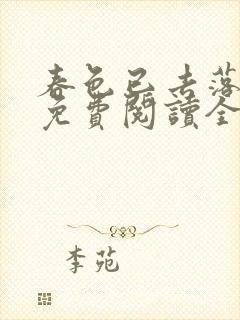 春色已去落
免費閱讀全
李苑